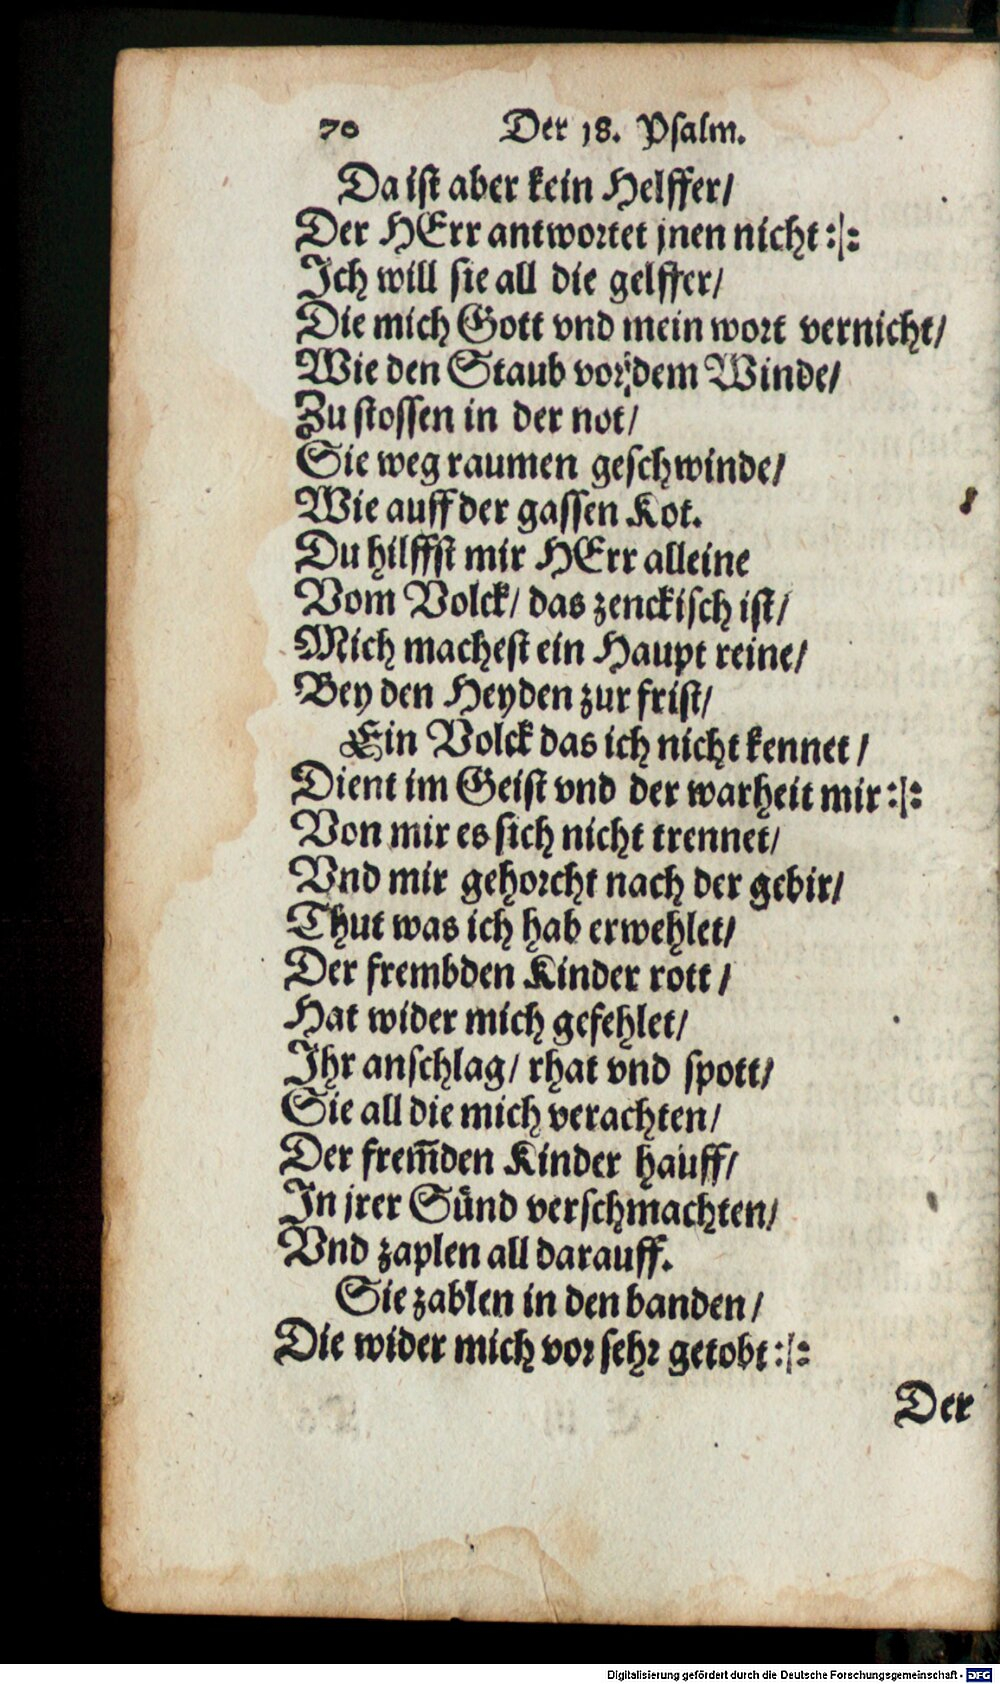 70 Der 18. Psalm.
Da ist aber kein Helffer/
Der HErr antwortet jnen nicht :|:
Ich will sie all die gelffer/
Die mich Gott vnd mein wort vernicht/
Wie den Staub vor dem Winde/
Zu stossen in der not/
Sie weg raumen geschwinde/
Wie auff der gassen Kot.
Du hilffst mir HErr alleine
Vom Volck/ das zenckisch ist/
Mich machest ein Haupt reine/
Bey den Heyden zur frist/
Ein Volck das ich nicht kennet/
Dient im Geist vnd der warheit mir :|:
Von mir es sich nicht trennet/
Vnd mir gehorcht nach der gebir/
Thut was ich hab erwehlet/
Der frembden Kinder rott/
Hat wider mich gefehlet/
Ihr anschlag/ rhat vnd spott/
Sie all die mich verachten/
Der frem̄den Kinder hauff/
In jrer Sünd verschmachten/
Vnd zaplen all darauff.
Sie zablen in den banden/
Die wider mich vor sehr getobt :|:
Der
Digitalisierung gefördert durch die Deutsche Forschungsgemeinschaft - DFG